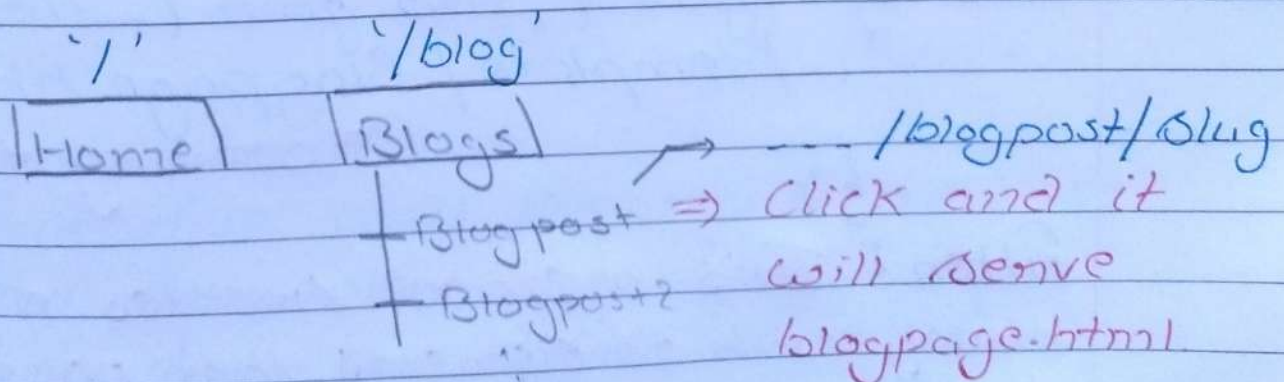 '/' '/blog'
Home Blogs ---- /blogpost/slug
Blogpost ⇒ Click and it
will serve
Blogpost2
blogpage.html